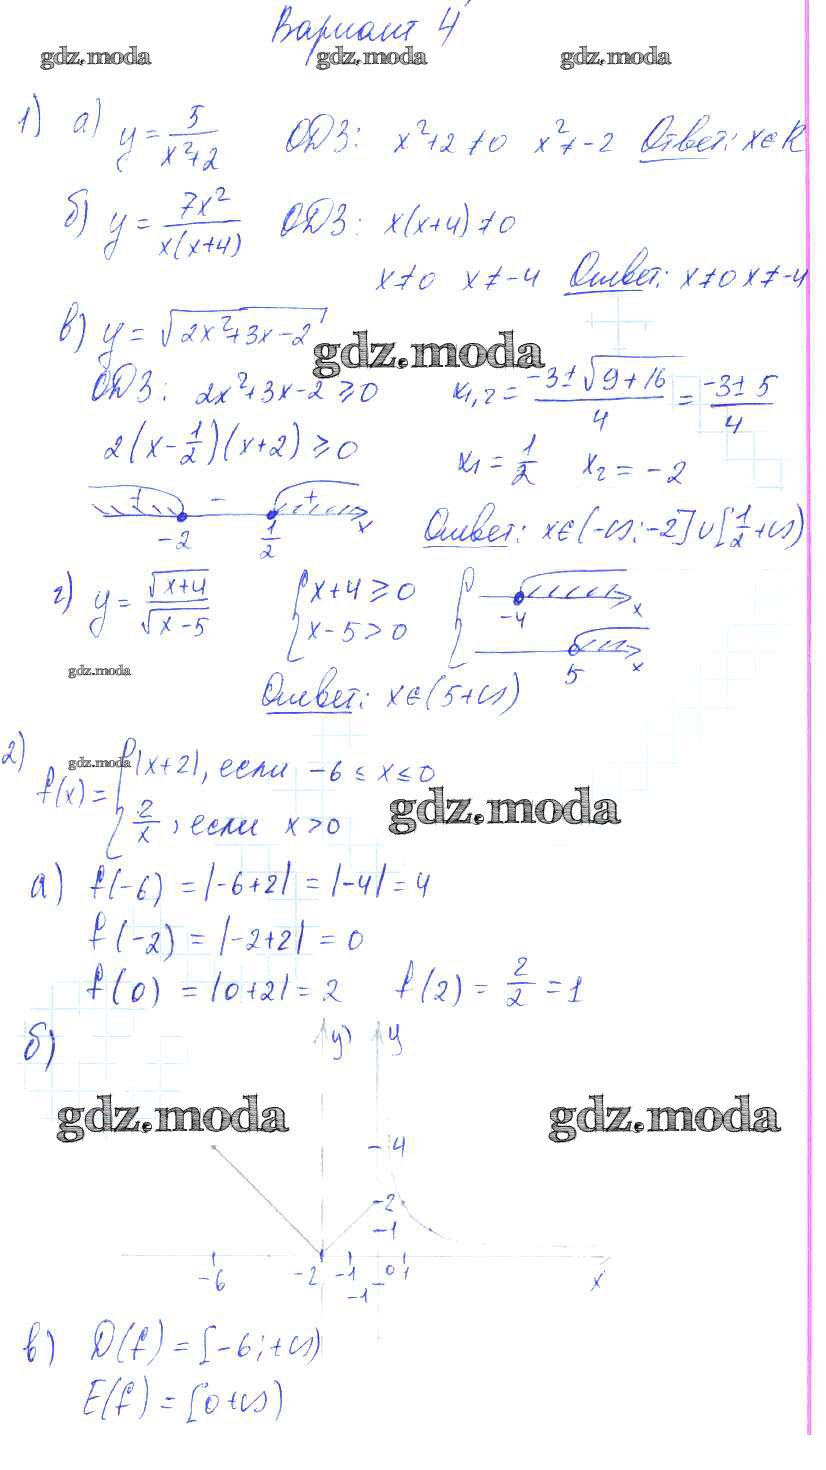 Вариант 4
gdz.moda gdz.moda gdz.moda
1) а) y = 5/(x²+2) ОДЗ: x²+2≠0 x²≠-2 Ответ: x∈R
б) y = 7x²/(x(x+4)) ОДЗ: x(x+4)≠0
x≠0 x≠-4 Ответ: x≠0 x≠-4
в) y = √(2x²+3x-2)
gdz.moda
ОДЗ: 2x²+3x-2≥0 x₁,₂ = (-3±√(9+16))/4 = (-3±5)/4
2(x-1/2)(x+2)≥0 x₁ = 1/2 x₂ = -2
+ - + x
-2 1/2 Ответ: x∈(-∞;-2]∪[1/2+∞)
г) y = √(x+4)/√(x-5) { x+4≥0 { -4 x
x-5>0 5 x
gdz.moda
Ответ: x∈(5+∞)
2) gdz.moda
f(x) = { |x+2|, если -6≤x≤0
2/x, если x>0
gdz.moda
а) f(-6) = |-6+2| = |-4| = 4
f(-2) = |-2+2| = 0
f(0) = |0+2| = 2 f(2) = 2/2 = 1
б) y) y
gdz.moda gdz.moda
4
2
1
-6 -2 -1 0 1 x
-1
в) D(f) = [-6;+∞)
E(f) = [0+∞)